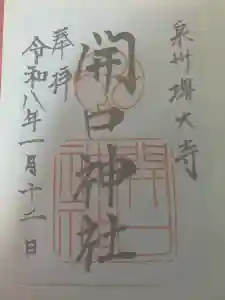 泉州堺大寺
開口神社
奉拝
令和八年一月十二日